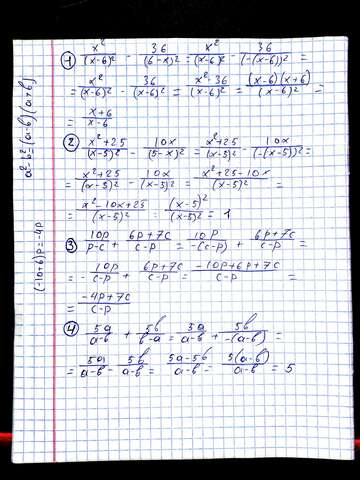 ① x²/(x-6)² - 36/(6-x)² = x²/(x-6)² - 36/(-(x-6))² =
= x²/(x-6)² - 36/(x-6)² = x²-36/(x-6)² = (x-6)(x+6)/(x-6)² =
= x+6/x-6
② x²+25/(x-5)² - 10x/(5-x)² = x²+25/(x-5)² - 10x/(-(x-5))² =
= x²+25/(x-5)² - 10x/(x-5)² = x²+25-10x/(x-5)² =
= x²-10x+25/(x-5)² = (x-5)²/(x-5)² = 1
③ 10p/p-c + 6p+7c/c-p = 10p/-(c-p) + 6p+7c/c-p =
= - 10p/c-p + 6p+7c/c-p = -10p+6p+7c/c-p =
= -4p+7c/c-p
④ 5a/a-b + 5b/b-a = 5a/a-b + 5b/-(a-b) =
= 5a/a-b - 5b/a-b = 5a-5b/a-b = 5(a-b)/a-b = 5
a²-b²=(a-b)(a+b)
(-10+6)p=-4p